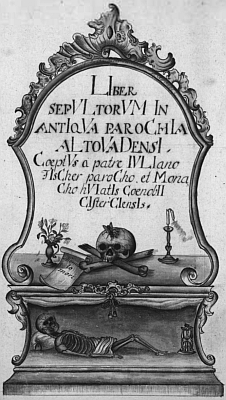 LIBER
SEPVLTORVM IN
ANTIQVA PAROCHIA
ALTOVADENSI.
CœptVs a patre IVLIano
FIsCher paroCho, et Mona
Cho hVIatIs CoenobII
CIsterCIensIs.